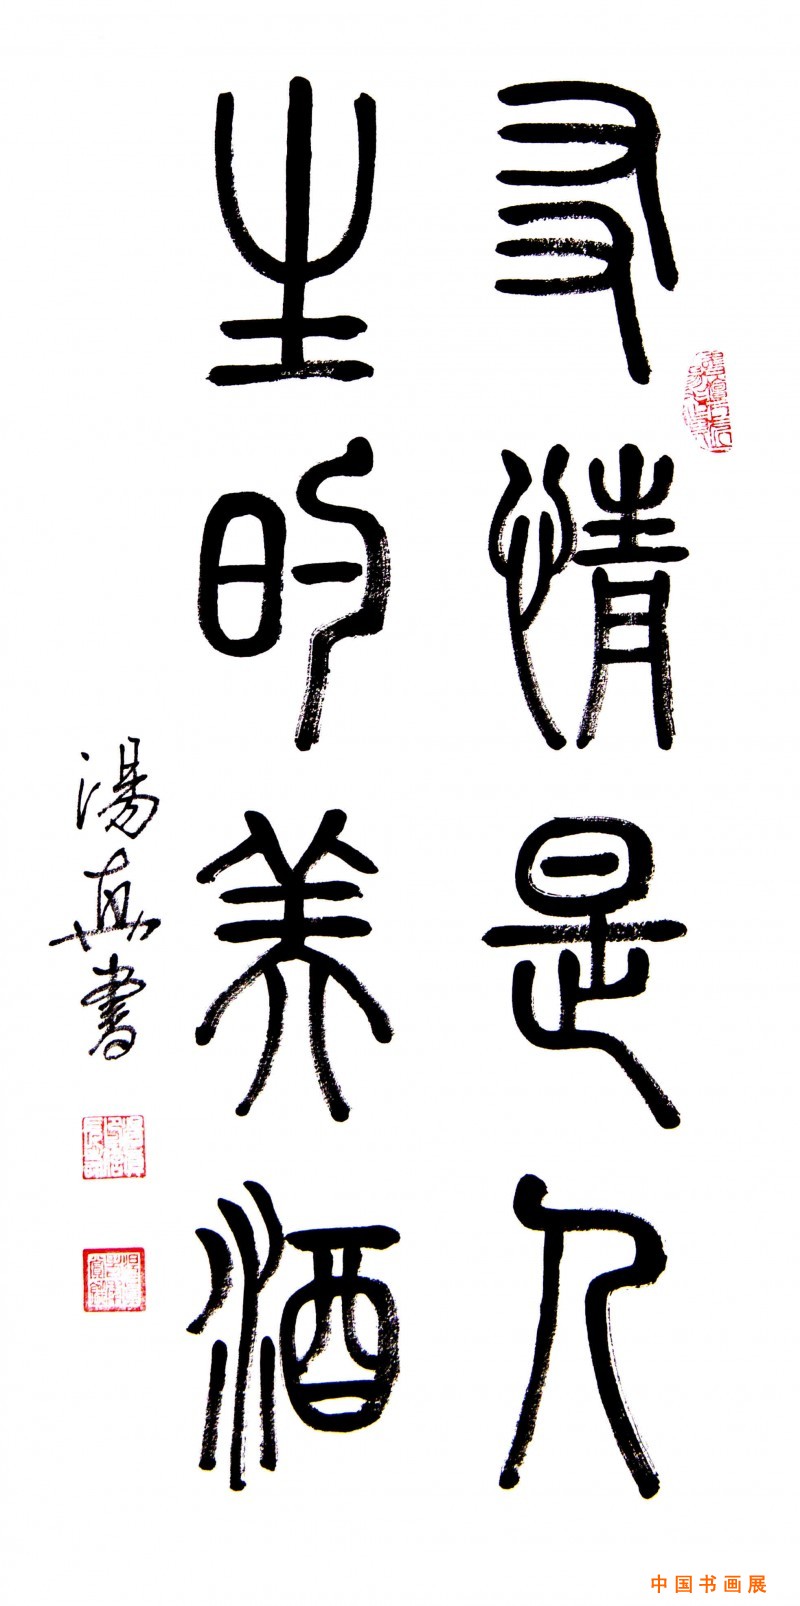 友情是人
生的美酒
湯真書
中国书画展